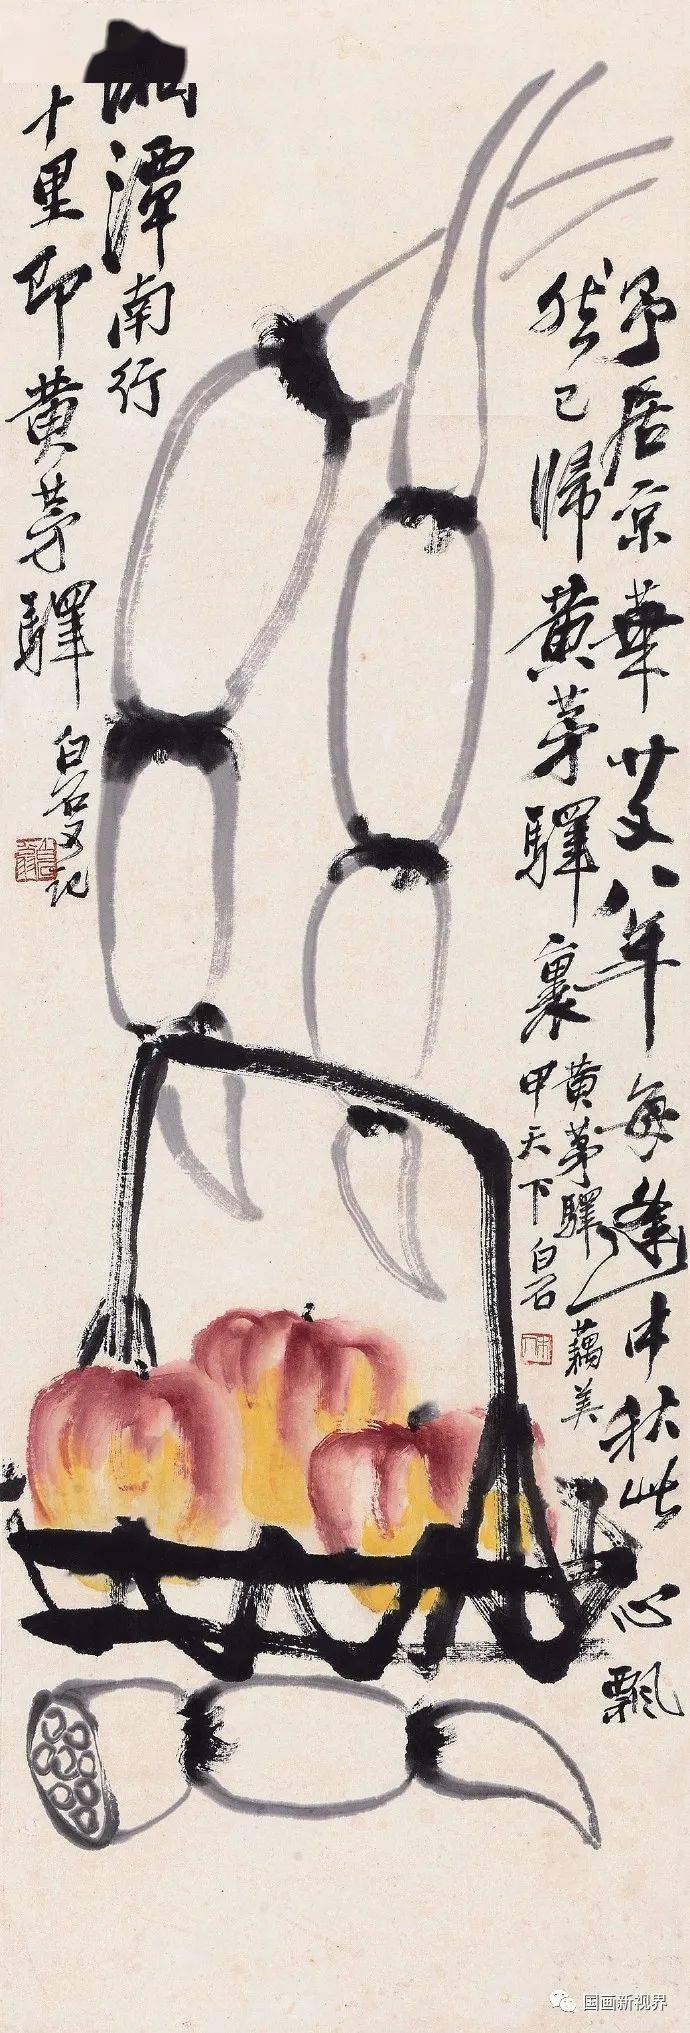 予居京華廿又八年每逢中秋此心飄
然已歸黄茅驛裏
黄茅驛藕美
甲天下白石
湘潭南行
十里即黄茅驛
白石又記
国画新视界